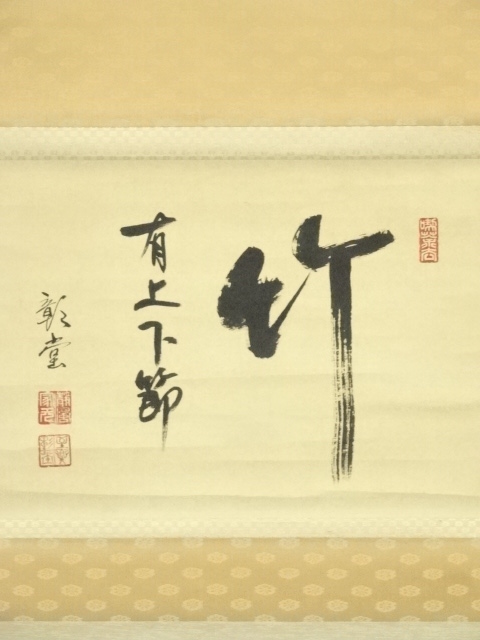 竹
有上下節
彰堂